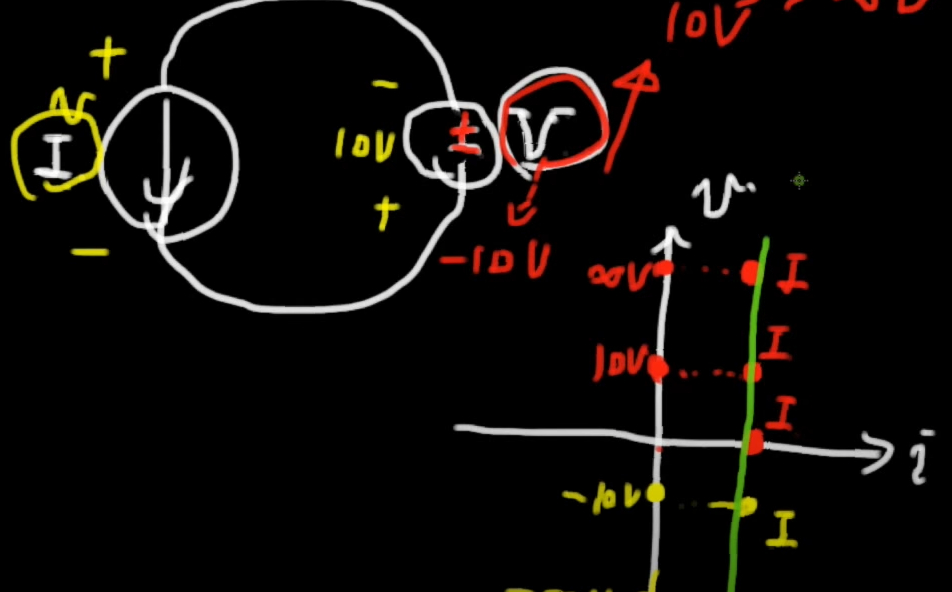 10V
+
-
v
I
10V
±
V
-
+
-10V
v
∞V
I
10V
I
I
i
-10V
I